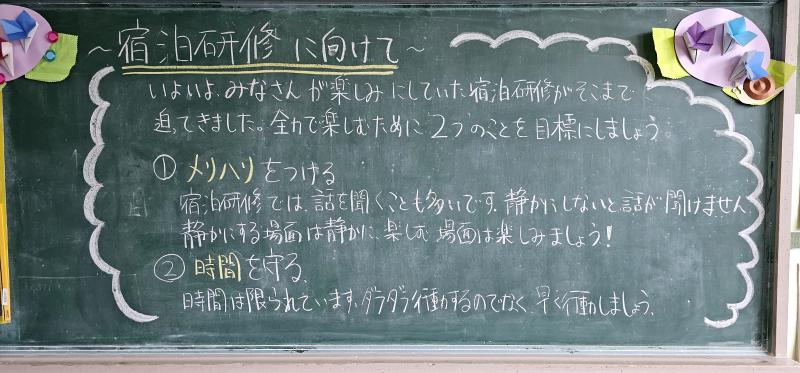 ～宿泊研修に向けて～
いよいよ、みなさんが楽しみにしていた宿泊研修がそこまで
迫ってきました。全力で楽しむために2つのことを目標にしましょう
① メリハリをつける
宿泊研修では、話を聞くことも多いです。静かにしないと話が聞けません
静かにする場面は静かに、楽しむ場面は楽しみましょう!
② 時間を守る。
時間は限られています。ダラダラ行動するのでなく、早く行動しましょう。